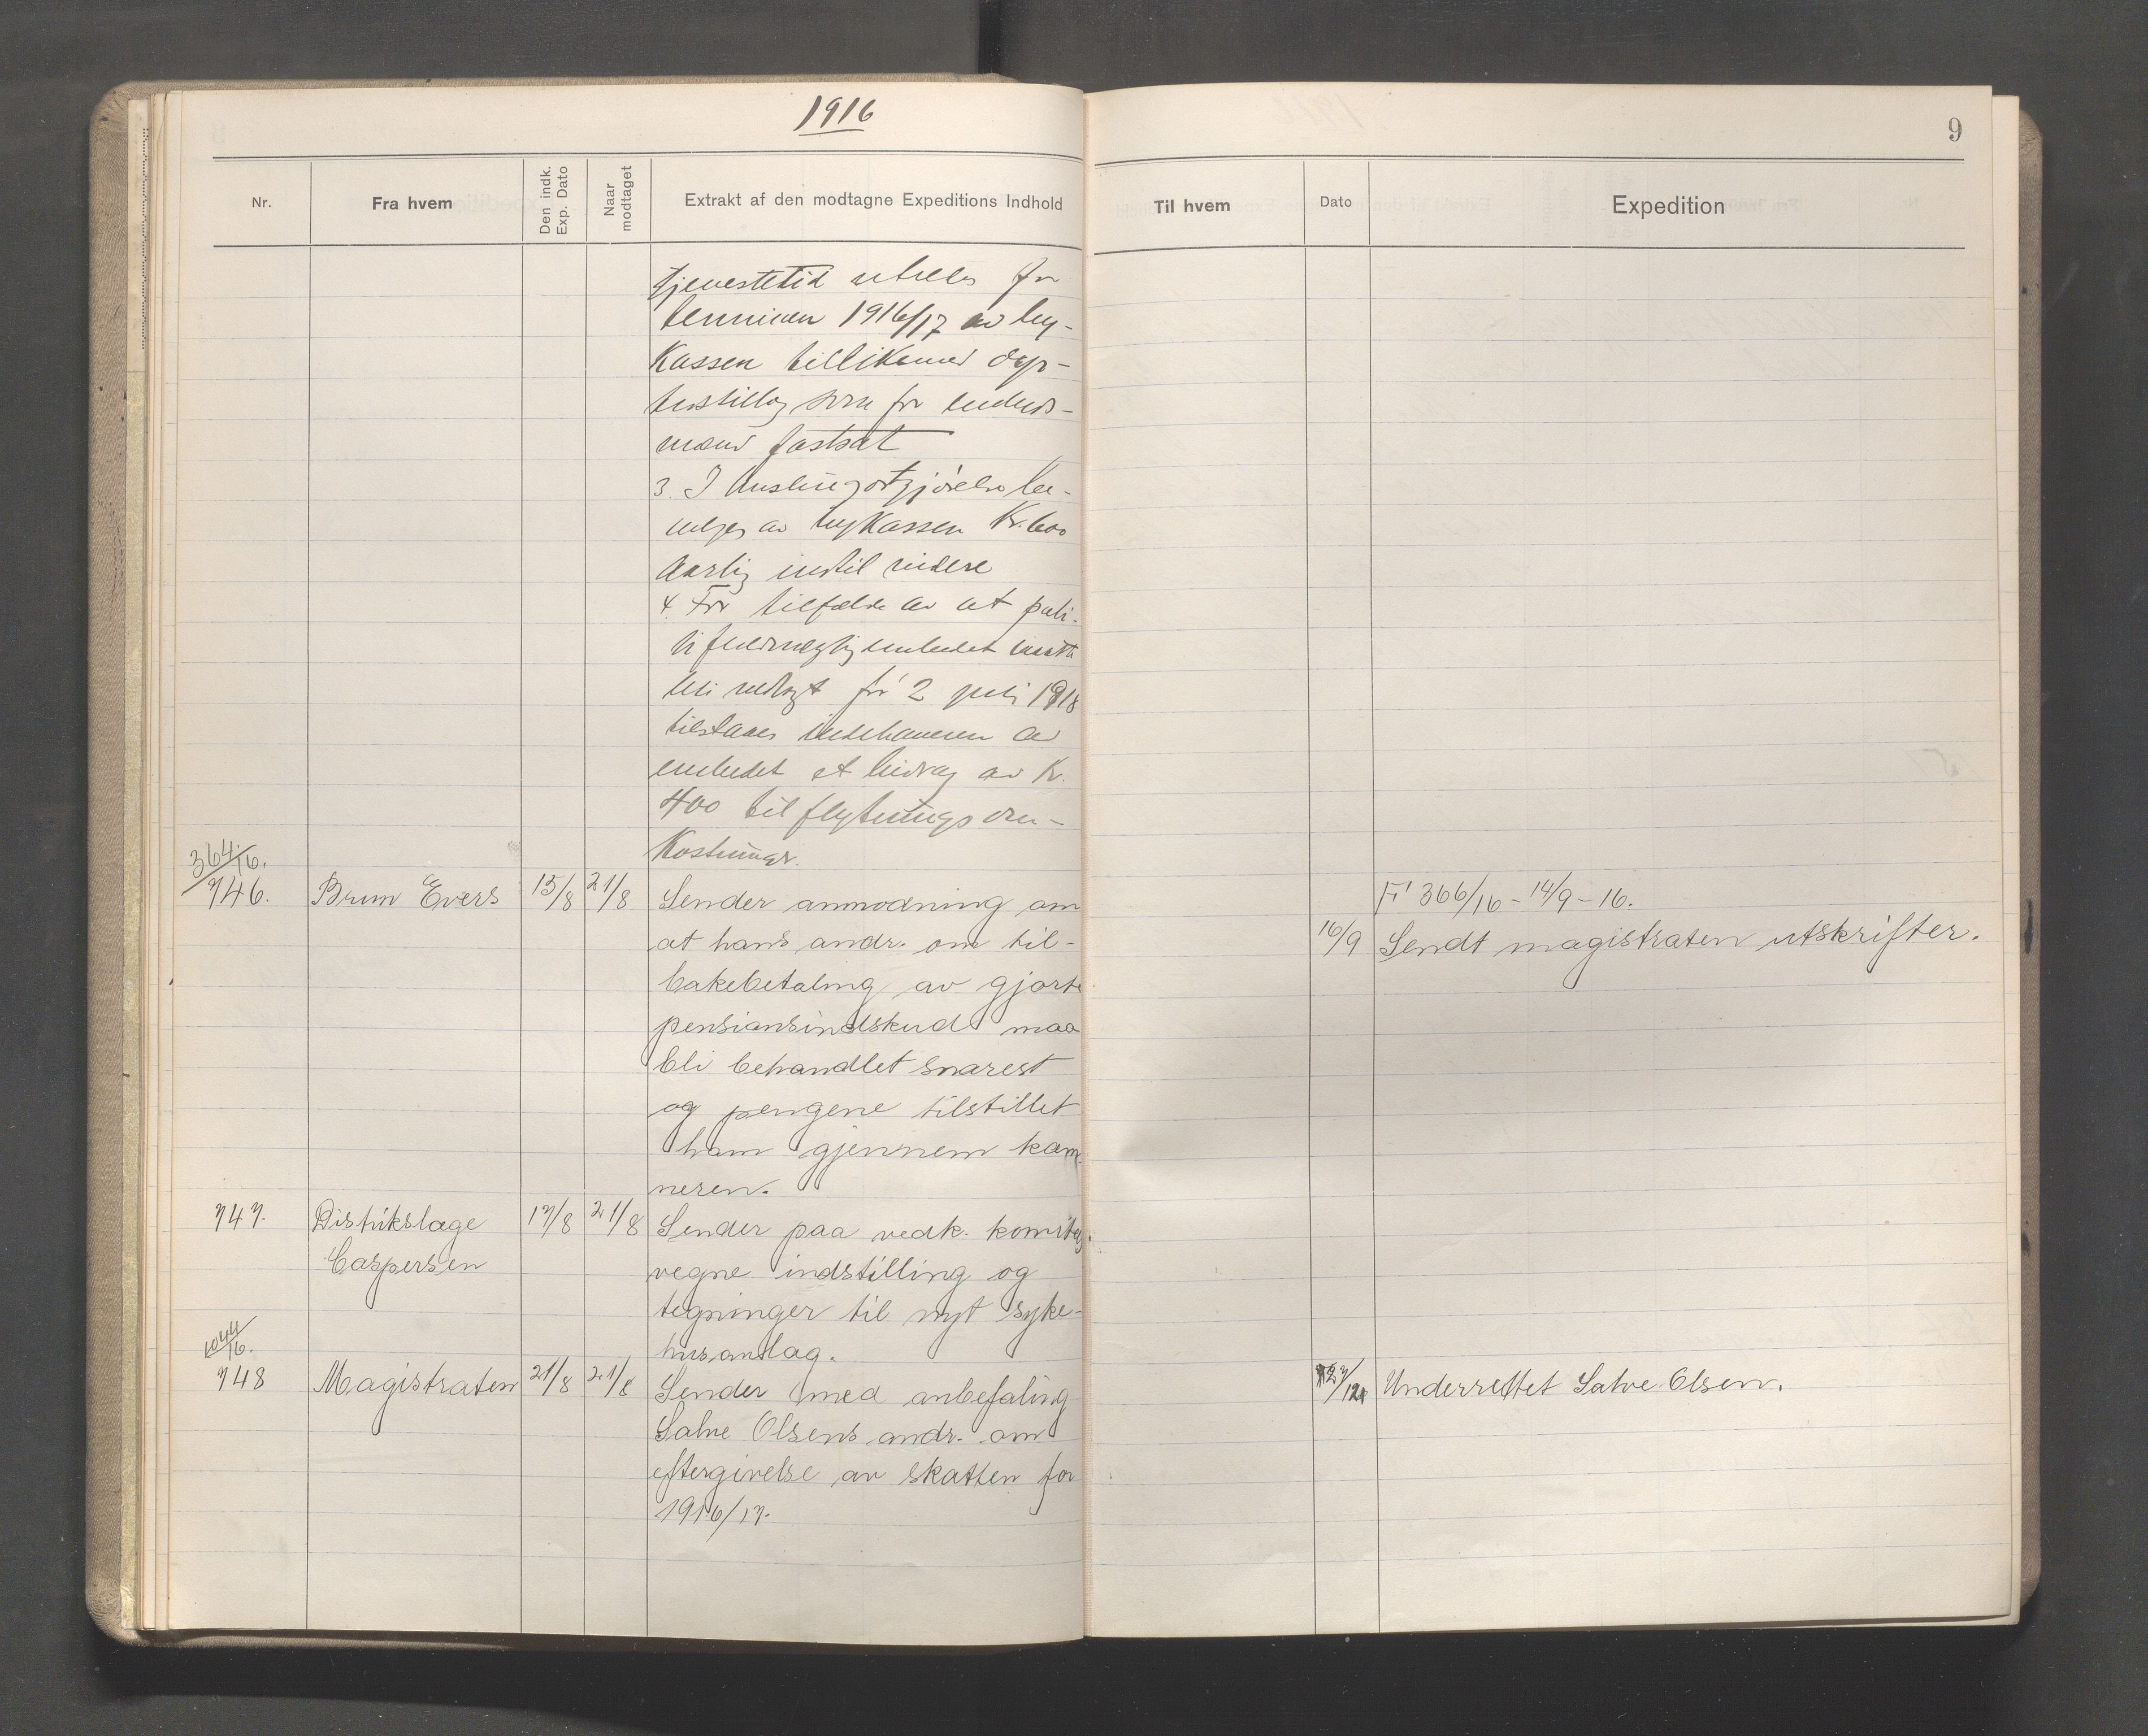 1916
9
Nr.
Fra hvem
Den indk. Exp. Dato
Naar modtaget
Extrakt af den modtagne Expeditions Indhold
Til hvem
Dato
Expedition
tjenestetid utredes for
terminen 1916/17 av by-
kassen tillikemed dyr-
tidstillæg som for embeds-
mænd fastsat
3. I kontorgodtgjørelse be-
vilges av bykassen Kr. 600
aarlig indtil videre
4. For tilfælde av at politi-
embedet
bli inddragt før 2 juli 1918
tilstaaes indehaveren av
embedet et bidrag av Kr.
400 til flytningsom-
kostninger.
364/16.
746. Brun Evers 15/8 21/8 Sender anmodning om
at hans andr. om til-
bakebetaling av gjorte
pensionsindskud maa
bli behandlet snarest
og pengene tilstillet
ham gjennem kæm-
neren.
F 366/16 - 14/9 - 16.
16/9 Sendt magistraten utskrifter.
747. Distrikslæge 17/8 21/8 Sender paa vedk. komites
Caspersen vegne indstilling og
tegninger til nyt syke-
husanlæg.
1044/16.
748 Magistraten 21/8 21/8 Sender med anbefaling
Salve Olsens andr. om
eftergivelse av skatten for
1916/17.
27/12 Underrettet Salve Olsen.